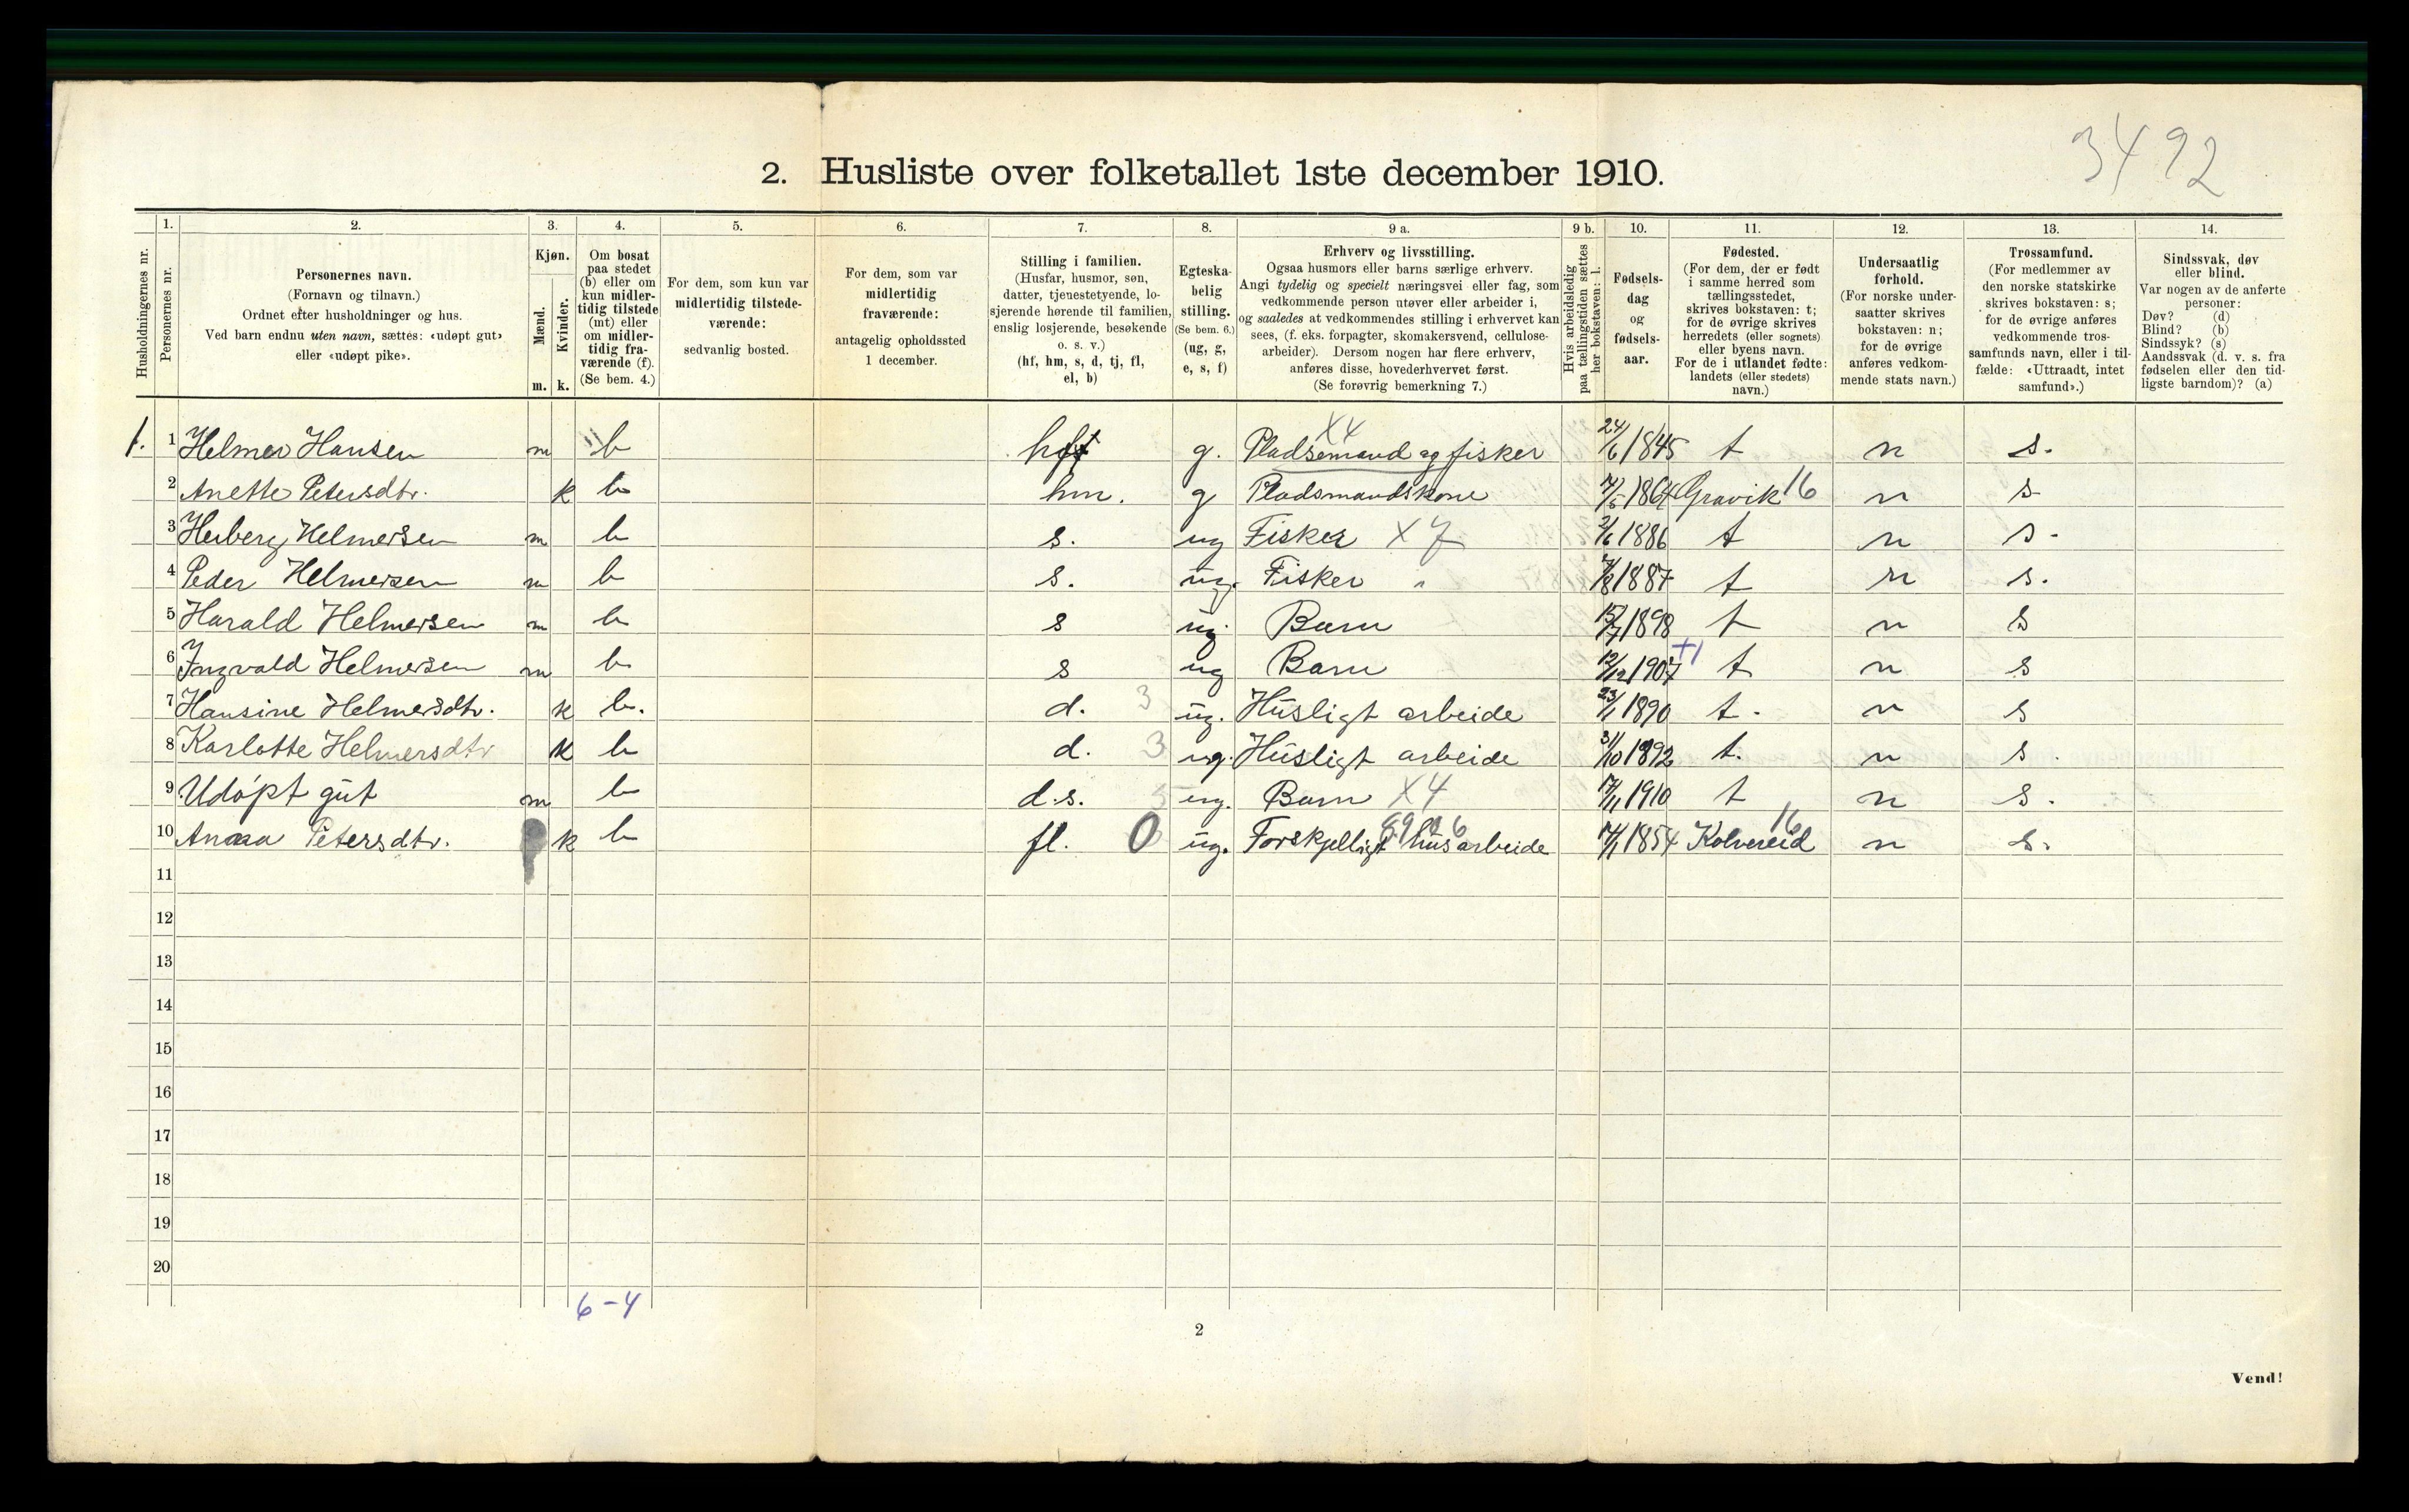 3492
2. Husliste over folketallet 1ste december 1910.
Husholdningernes nr.
1.
Personernes nr.
2.
Personernes navn.
(Fornavn og tilnavn.)
Ordnet efter husholdninger og hus.
Ved barn endnu uten navn, sættes: «udøpt gut»
eller «udøpt pike».
3.
Kjøn.
Mænd.
Kvinder.
m. k.
4.
Om bosat
paa stedet
(b) eller om
kun midler-
tidig tilstede
(mt) eller
om midler-
tidig fra-
værende (f).
(Se bem. 4.)
5.
For dem, som kun var
midlertidig tilstede-
værende:
sedvanlig bosted.
6.
For dem, som var
midlertidig
fraværende:
antagelig opholdssted
1 december.
7.
Stilling i familien.
(Husfar, husmor, søn,
datter, tjenestetyende, lo-
sjerende hørende til familien,
enslig losjerende, besøkende
o. s. v.)
(hf, hm, s, d, tj, fl,
el, b)
8.
Egteska-
belig
stilling.
(Se bem. 6.)
(ug, g,
e, s, f)
9 a.
Erhverv og livsstilling.
Ogsaa husmors eller barns særlige erhverv.
Angi tydelig og specielt næringsvei eller fag, som
vedkommende person utøver eller arbeider i,
og saaledes at vedkommendes stilling i erhvervet kan
sees, (f. eks. forpagter, skomakersvend, cellulose-
arbeider). Dersom nogen har flere erhverv,
anføres disse, hovederhvervet først.
(Se forøvrig bemerkning 7.)
9 b.
Hvis arbeidsledig
paa tællingstiden sættes
her bokstaven: l.
10.
Fødsels-
dag
og
fødsels-
aar.
11.
Fødested.
(For dem, der er født
i samme herred som
tællingsstedet,
skrives bokstaven: t;
for de øvrige skrives
herredets (eller sognets)
eller byens navn.
For de i utlandet fødte:
landets (eller stedets)
navn.)
12.
Undersaatlig
forhold.
(For norske under-
saatter skrives
bokstaven: n;
for de øvrige
anføres vedkom-
mende stats navn.)
13.
Trossamfund.
(For medlemmer av
den norske statskirke
skrives bokstaven: s;
for de øvrige anføres
vedkommende tros-
samfunds navn, eller i til-
fælde: «Uttraadt, intet
samfund».)
14.
Sindssvak, døv
eller blind.
Var nogen av de anførte
personer:
Døv? (d)
Blind? (b)
Sindssyk? (s)
Aandssvak (d. v. s. fra
fødselen eller den tid-
ligste barndom)? (a)
X4
1. 1 Helmer Hansen m b hf g. Pladsemand og fisker 24/6 1845 t n s.
2 Anette Petersdtr. k b hm. g Pladsmandskone 1864 Gravik 16 n s
3 Herberg Helmersen m b s. ug Fisker X 7 2/6 1886 t n s.
4 Peder Helmersen m b s. ug. Fisker " 7/8 1887 t n s.
5 Harald Helmersen m b s ug. Barn 15/7 1898 t n s
6 Ingvald Helmersen m b s ug Barn 12/12 1907 +1 t n s
7 Hansine Helmersdtr. k b. d. 3 ug. Husligt arbeide 23/1 1890 t. n s
8 Karlotte Helmersdtr k b d. 3 ug. Husligt arbeide 31/10 1892 t. n s.
9 Udøpt gut m b d.s. 5 ug. Barn X4 17/11 1910 t n s.
10 Anna Petersdtr. k b fl. 0 ug. Forskjelligt husarbeide 14/1 1854 Kolvereid 16 n s.
11
12
13
14
15
16
17
18
19
20
6-4
2
Vend!